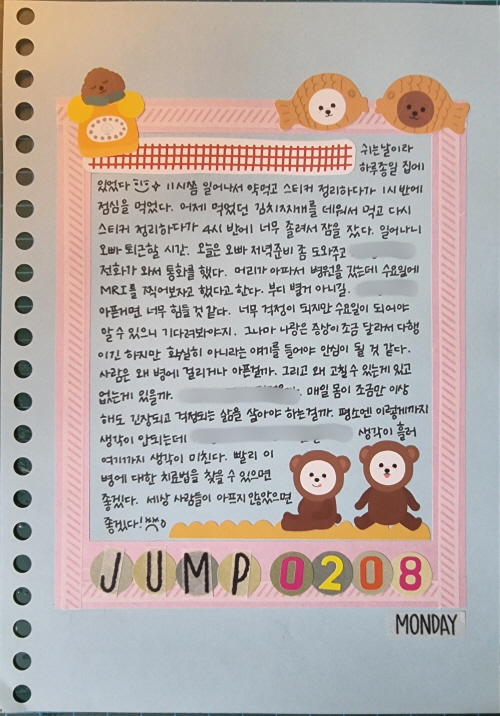 쉬는날이라
하루종일 집에
있었다 11시쯤 일어나서 약먹고 스티커 정리하다가 1시 반에
점심을 먹었다. 어제 먹었던 김치찌개를 데워서 먹고 다시
스티커 정리하다가 4시 반에 너무 졸려서 잠을 잤다. 일어나니
오빠 퇴근할 시간. 오늘은 오빠 저녁준비 좀 도와주고
전화가 와서 통화를 했다. 머리가 아파서 병원을 갔는데 수요일에
MRI를 찍어보자고 했다고 한다. 부디 별거 아니길.
아픈거면 너무 힘들 것 같다. 너무 걱정이 되지만 수요일이 되어야
알 수 있으니 기다려봐야지. 그나마 나랑은 증상이 조금 달라서 다행
이긴 하지만 확실히 아니라는 얘기를 들어야 안심이 될 것 같다.
사람은 왜 병에 걸리거나 아픈걸까. 그리고 왜 고칠 수 있는게 있고
없는게 있을까. 매일 몸이 조금만 이상
해도 긴장되고 걱정되는 삶을 살아야 하는걸까. 평소엔 이렇게까지
생각이 안되는데 생각이 흘러
여기까지 생각이 미친다. 빨리 이
병에 대한 치료법을 찾을 수 있으면
좋겠다. 세상 사람들이 아프지 않았으면
좋겠다!
JUMP 0208
MONDAY